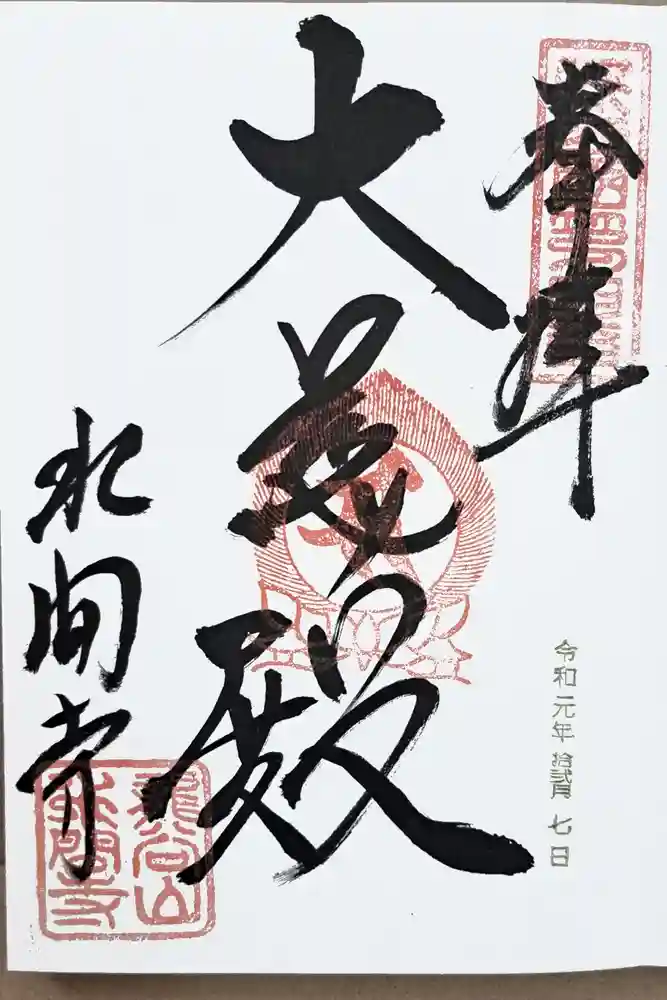 奉拝
大慈殿
水間寺
令和元年拾貳月七日
龍谷山
水間寺